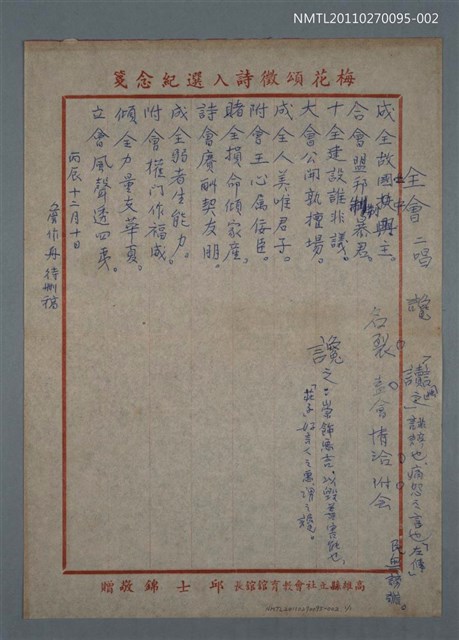 NMTL20110270095-002
梅花頌徵詩入選紀念箋
全會 二唱
成全故國拔興主。
合會盟邦制暴君。
十全建設誰非議。
大會公開孰擅場。
成全人美唯君子。
附會王心屬佞臣。
賭全損命傾家產。
詩會賡酬契友朋。
成全弱者生能力。
附會權门作福威。
傾全力量支華夏。
立會風聲透四夷。
丙辰十二月十日
名裂 會 情洽 附会
讒
讒之:崇飾惡言,以毀善害能也,
「莊子」好言人之惡謂之讒。
高雄縣立社會教育館館長 邱士錦敬贈